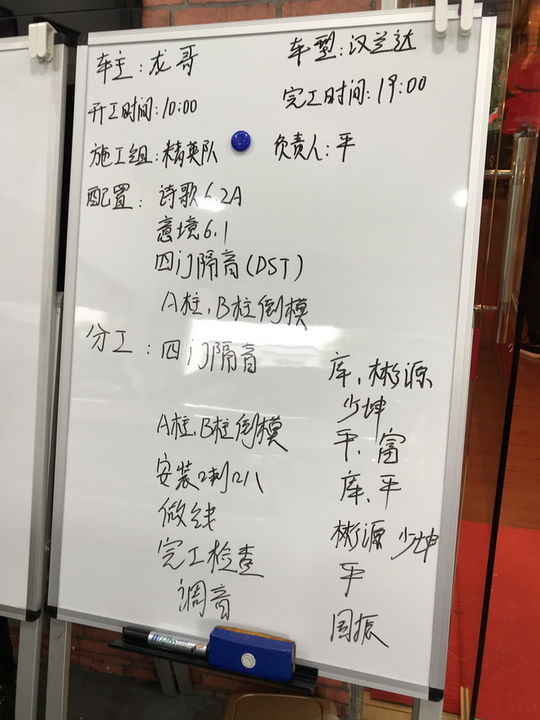 车主：龙哥 车型：汉兰达
开工时间：10:00 完工时间：19:00
施工组：精英队 负责人：平
配置：诗歌6.2A
意境6.1
四门隔音(DST)
A柱、B柱倒模
分工：四门隔音 库、彬源
少坤
A柱、B柱倒模 平、富
安装喇叭 库、平
做线 彬源 少坤
完工检查 平
调音 国振